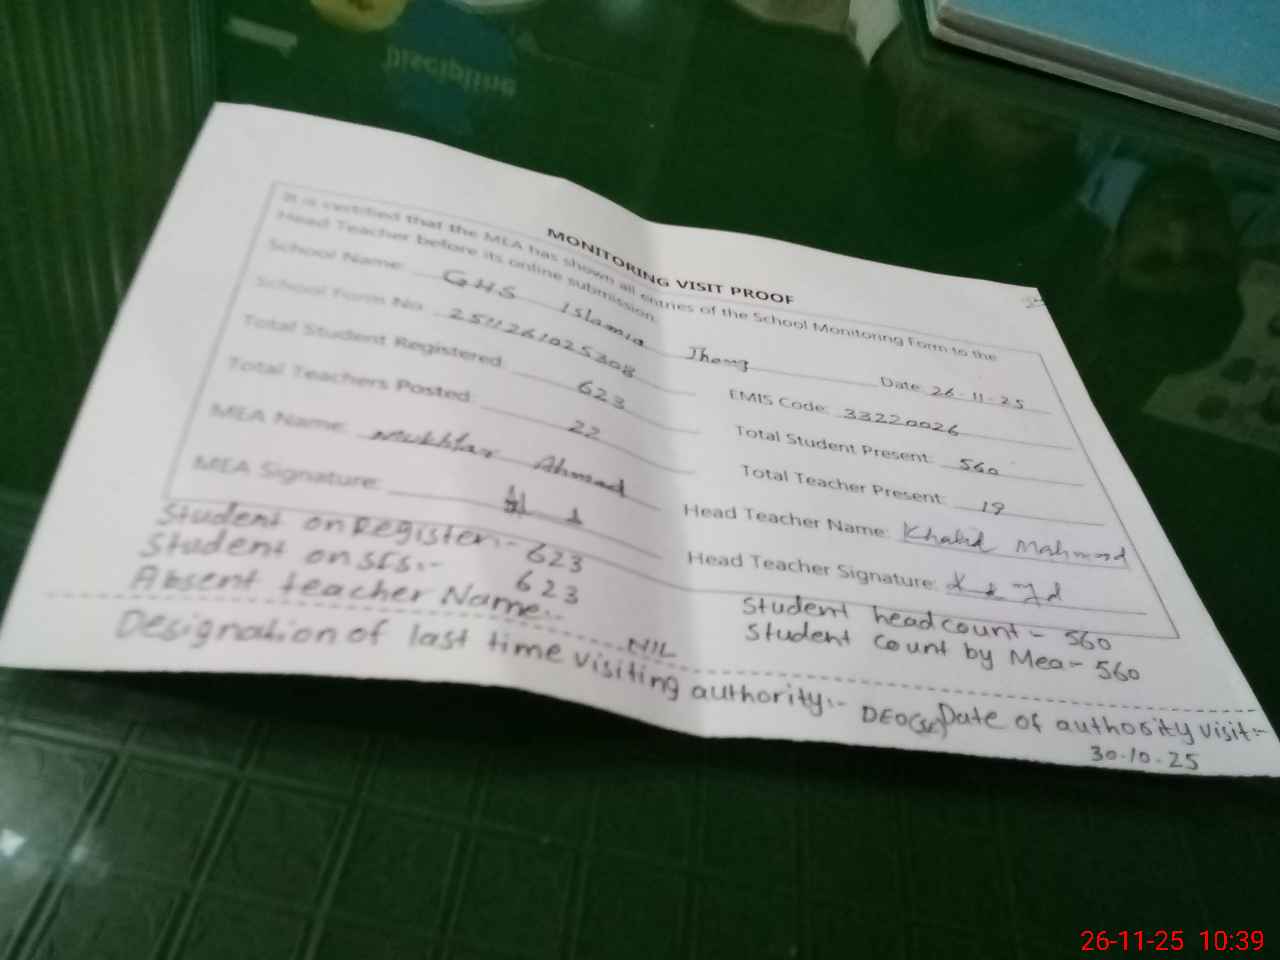 Discipline
MONITORING VISIT PROOF
It is certified that the MEA has shown all entries of the School Monitoring Form to the
Head Teacher before its online submission.
School Name: GHS Islamia Jhang Date: 26-11-25
School Form No. 2511261025308 EMIS Code: 33220026
Total Student Registered: 623 Total Student Present: 560
Total Teachers Posted: 22 Total Teacher Present: 19
MEA Name: Mukhtar Ahmad Head Teacher Name: Khalid Mahmood
MEA Signature: Head Teacher Signature:
Student on Register:- 623 Student head count - 560
Student on SIS:- 623 Student Count by Mea - 560
Absent teacher Name:- NIL
Designation of last time visiting authority:- DEO(SE) Date of authority visit:-
30-10-25
26-11-25 10:39